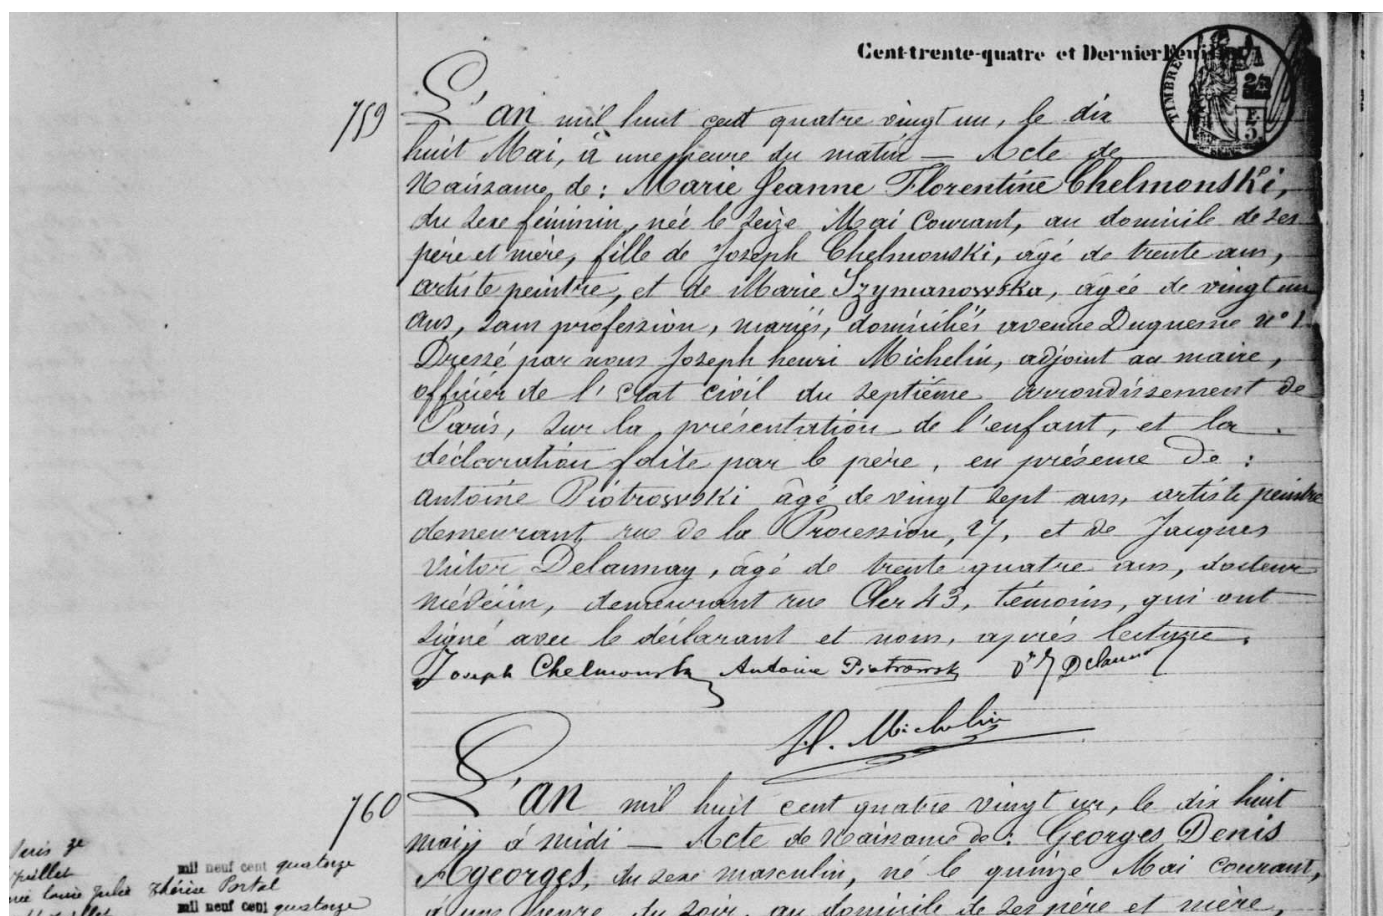 Cent-trente-quatre et Dernier Feuillet
TIMBRE
759
L'an mil huit cent quatre vingt un, le dix
huit Mai, à une heure du matin — Acte de
Naissance de : Marie Jeanne Florentine Chelmonski,
du sexe féminin, née le seize Mai courant, au domicile de ses
père et mère, fille de Joseph Chelmonski, âgé de trente ans,
artiste peintre, et de Marie Szymanowska, âgée de vingt un
ans, sans profession, mariés, domiciliés avenue Duquesne nº 1.
Dressé par nous Joseph henri Michelin, adjoint au maire,
officier de l'Etat civil du septième arrondissement de
Paris, sur la présentation de l'enfant, et la
déclaration faite par le père, en présence de :
antoine Piotrowski âgé de vingt sept ans, artiste peintre
demeurant rue de la Procession, 27, et de Jacques
Victor Delaunay, âgé de trente quatre ans, docteur
médecin, demeurant rue Cler 43, témoins, qui ont
signé avec le déclarant et nous, après lecture.
Joseph Chelmonski Antoine Piotrowski Dr Delaunay
H. Michelin
760
L'an mil huit cent quatre vingt un, le dix huit
mai à midi — Acte de Naissance de : Georges Denis
Ageorges, du sexe masculin, né le quinze Mai courant,
à une heure du soir, au domicile de ses père et mère,
juillet
mil neuf cent quatorze
Louise Julie Thérèse Portal
mil neuf cent quatorze